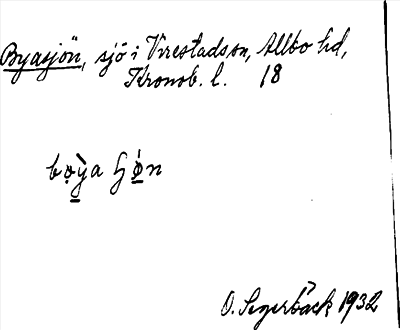 Byasjön, sjö i Virestads sn, Allbo hd,
Kronob. l. 18
bo̤ỳ̲a ɧǿ̲n
O. Segerbäck 1932